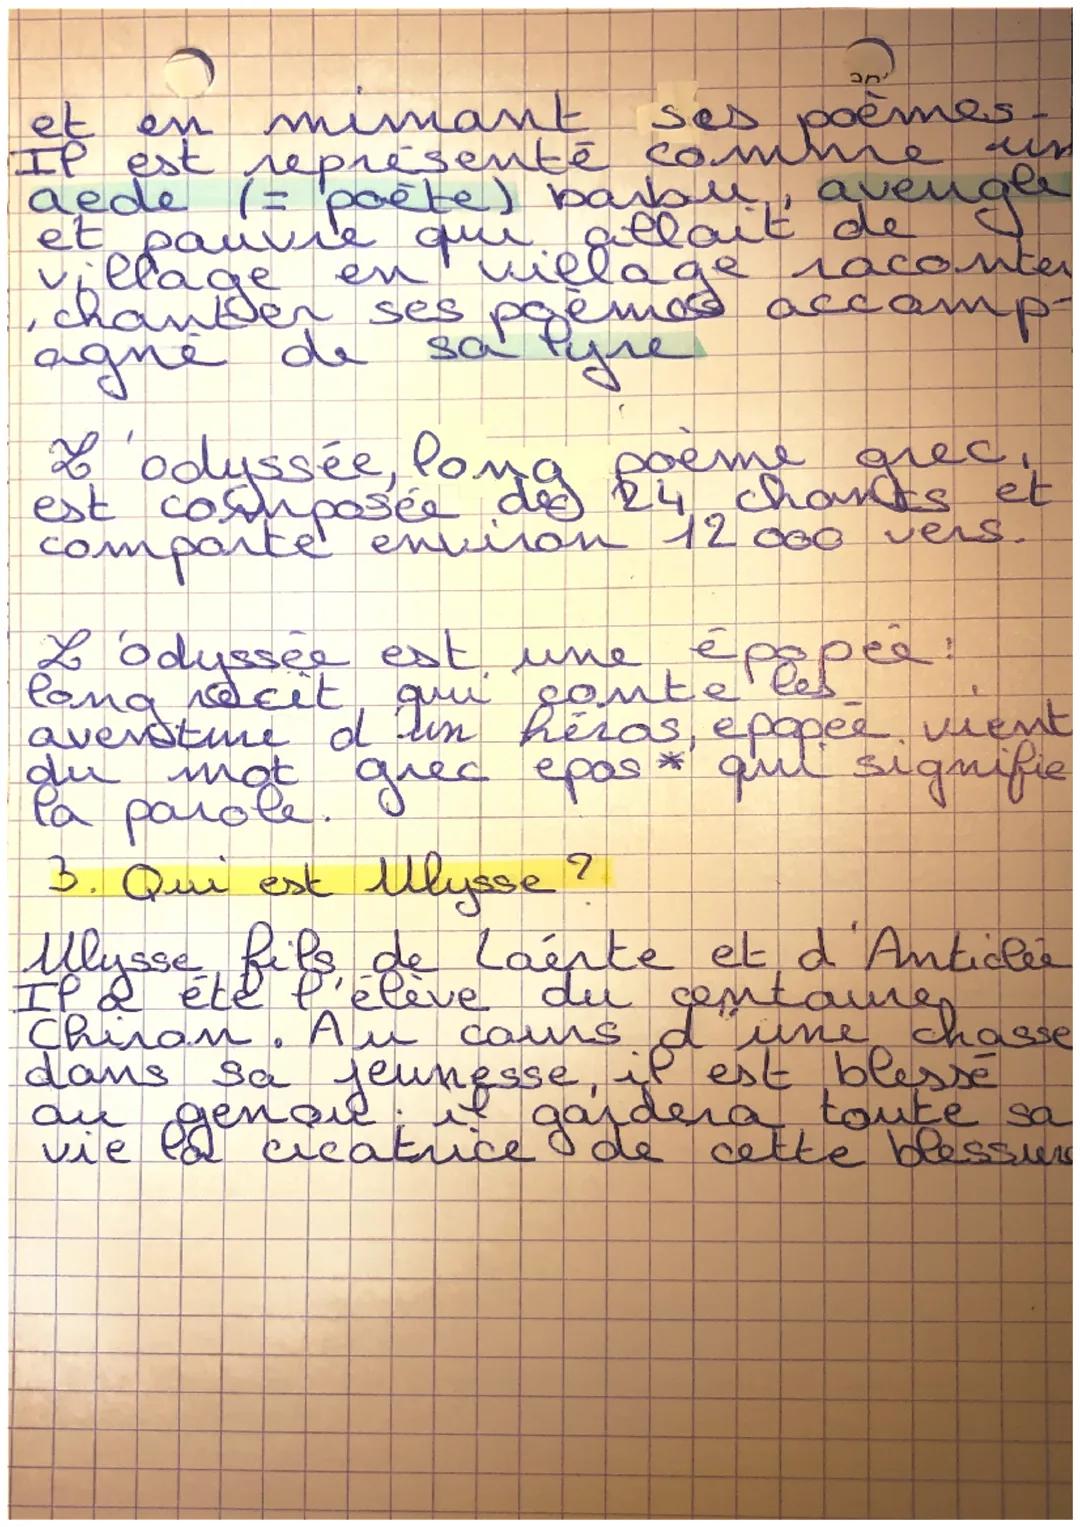 et en mimant ses poèmes.
Il est représenté comme un
aede (= poète) barbu, aveugle
et pauvre qui allait de
village en village raconter
, chanter ses poèmes accomp-
agné de sa lyre
L'odyssée, long poème grec,
est composée des 24 chants et
comporte environ 12 000 vers.
L'odyssée est une épopée :
long récit qui conte les
aventure d'un héros, epopée vient
du mot grec epos * qui signifie
la parole.
3. Qui est Ulysse ?
Ulysse fils de Laérte et d'Anticlée
Il a été l'élève du centaure
Chiron. Au cours d'une chasse
dans sa jeunesse, il est blessé
au genou : il gardera toute sa
vie la cicatrice de cette blessure